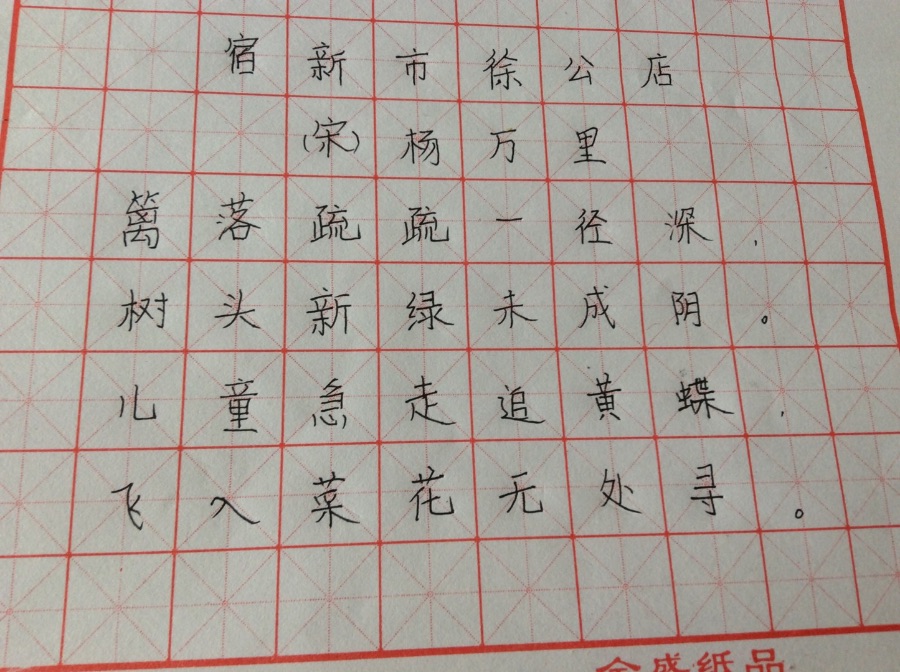 宿新市徐公店
(宋)杨万里
篱落疏疏一径深,
树头新绿未成阴。
儿童急走追黄蝶,
飞入菜花无处寻。